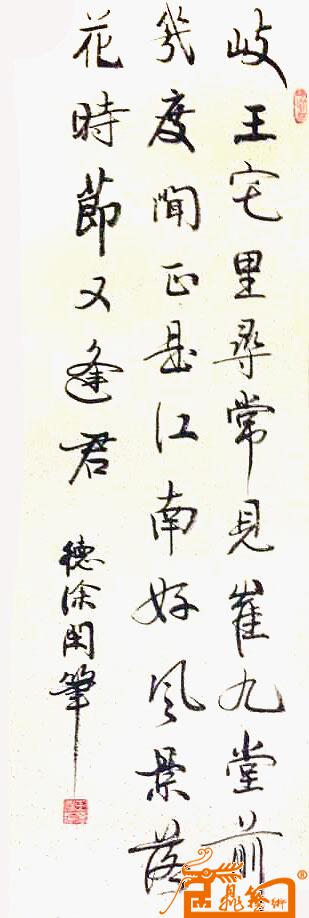 岐王宅里尋常見崔九堂前
幾度聞正是江南好風景落
花時節又逢君
德深閑筆